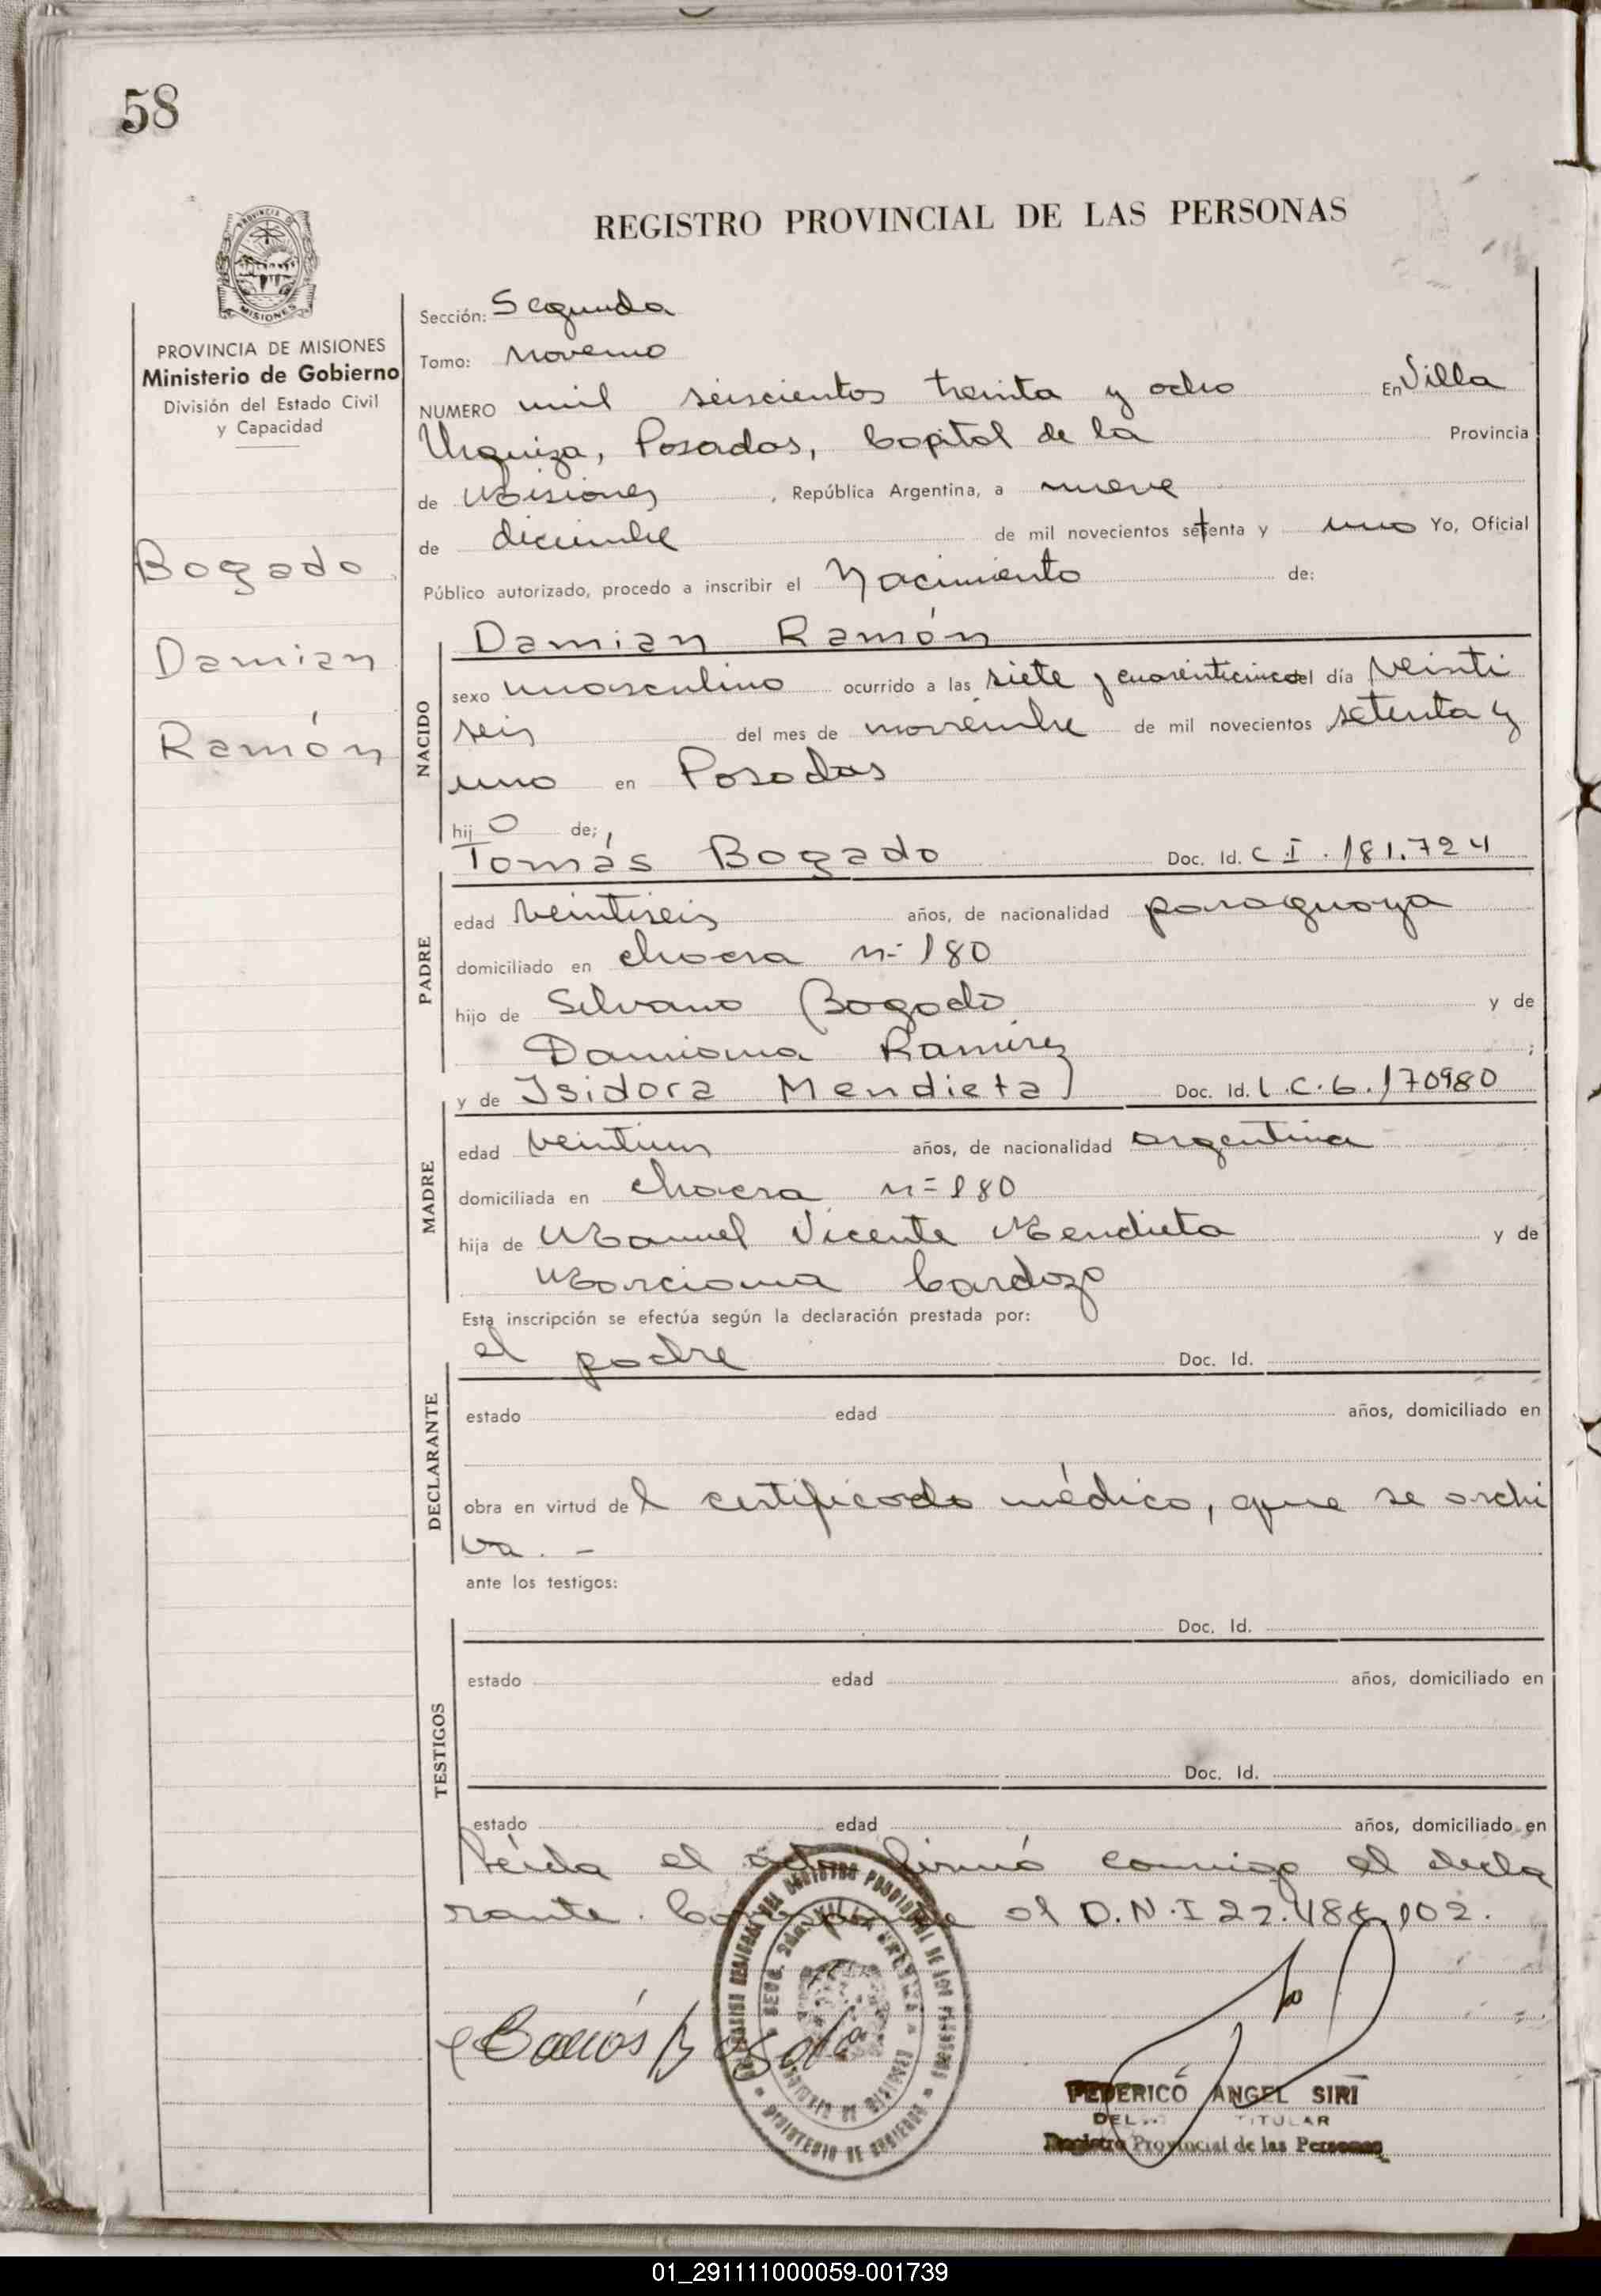 58
REGISTRO PROVINCIAL DE LAS PERSONAS
PROVINCIA DE
MISIONES
PROVINCIA DE MISIONES
Ministerio de Gobierno
División del Estado Civil
y Capacidad
Bogado
Damian
Ramón
Sección: Segunda
Tomo: Noveno
NUMERO mil seiscientos treinta y ocho En Villa
Urquiza, Posadas, Capital de la Provincia
de Misiones, República Argentina, a nueve
de diciembre de mil novecientos setenta y uno Yo, Oficial
Público autorizado, procedo a inscribir el Nacimiento de:
NACIDO
Damian Ramón
sexo masculino ocurrido a las siete y cuarenticinco del día veinti
seis del mes de noviembre de mil novecientos setenta y
uno en Posadas
hijo de;
PADRE
Tomás Bogado Doc. Id. C.I. 181.724
edad veintiseis años, de nacionalidad paraguaya
domiciliado en chacra n- 180
hijo de Silvano Bogado y de
Damiana Ramirez;
MADRE
y de Isidora Mendieta Doc. Id. L.C.6.170980
edad veintiun años, de nacionalidad argentina
domiciliada en chacra n= 180
hija de Manuel Vicente Mendieta y de
Marciana Cardozo
Esta inscripción se efectúa según la declaración prestada por:
DECLARANTE
el padre Doc. Id.
estado edad años, domiciliado en
obra en virtud del certificado médico, que se archi
va. -
ante los testigos:
TESTIGOS
Doc. Id.
estado edad años, domiciliado en
Doc. Id.
estado edad años, domiciliado en
Leída el acta firmó conmigo el decla
rante. Corresponde al D.N.I 22.  .102.
Bogado
MINISTERIO DE GOBIERNO
FEDERICO ANGEL SIRI
TITULAR
Registro Provincial de las Personas
01_291111000059-001739